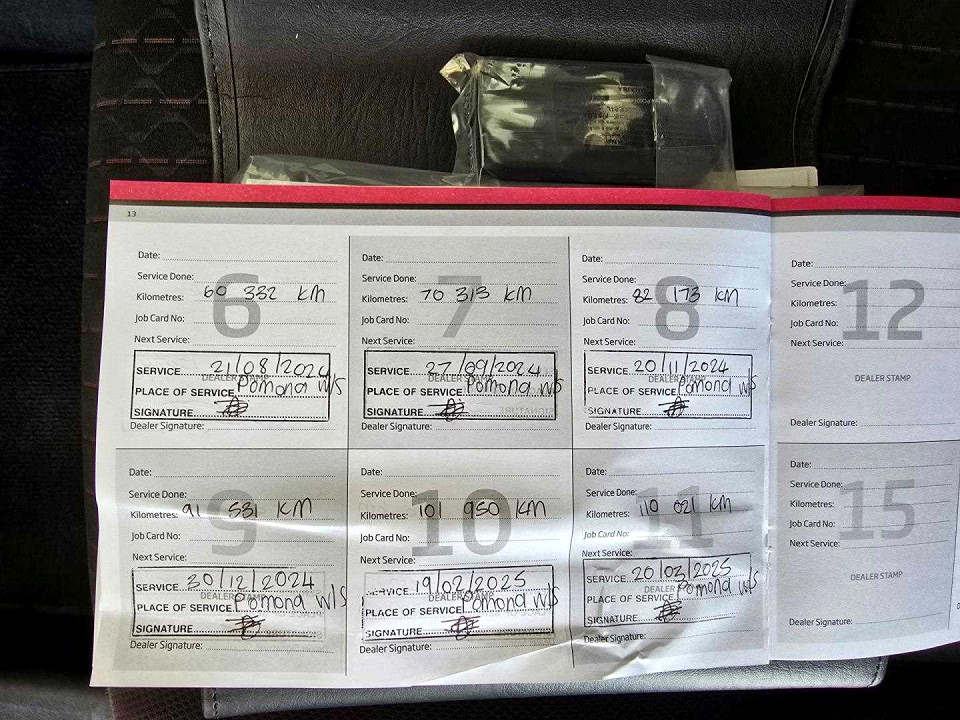 13
6
Date:
Service Done:
Kilometres: 60 332 KM
Job Card No:
Next Service:
SERVICE 21/08/2024
DEALER STAMP
PLACE OF SERVICE Pomona W/S
SIGNATURE
Dealer Signature:
7
Date:
Service Done:
Kilometres: 70 313 KM
Job Card No:
Next Service:
SERVICE 27/09/2024
DEALER STAMP
PLACE OF SERVICE Pomona W/S
SIGNATURE
Dealer Signature:
8
Date:
Service Done:
Kilometres: 82 173 KM
Job Card No:
Next Service:
SERVICE 20/11/2024
DEALER STAMP
PLACE OF SERVICE Pomona W/S
SIGNATURE
Dealer Signature:
12
Date:
Service Done:
Kilometres:
Job Card No:
Next Service:
DEALER STAMP
Dealer Signature:
9
Date:
Service Done:
Kilometres: 91 531 KM
Job Card No:
Next Service:
SERVICE 30/12/2024
DEALER STAMP
PLACE OF SERVICE Pomona W/S
SIGNATURE
Dealer Signature:
10
Date:
Service Done:
Kilometres: 101 950 KM
Job Card No:
Next Service:
SERVICE 19/02/2025
DEALER STAMP
PLACE OF SERVICE Pomona W/S
SIGNATURE
Dealer Signature:
11
Date:
Service Done:
Kilometres: 110 021 KM
Job Card No:
Next Service:
SERVICE 20/03/2025
DEALER STAMP
PLACE OF SERVICE Pomona W/S
SIGNATURE
Dealer Signature:
15
Date:
Service Done:
Kilometres:
Job Card No:
Next Service:
DEALER STAMP
Dealer Signature: